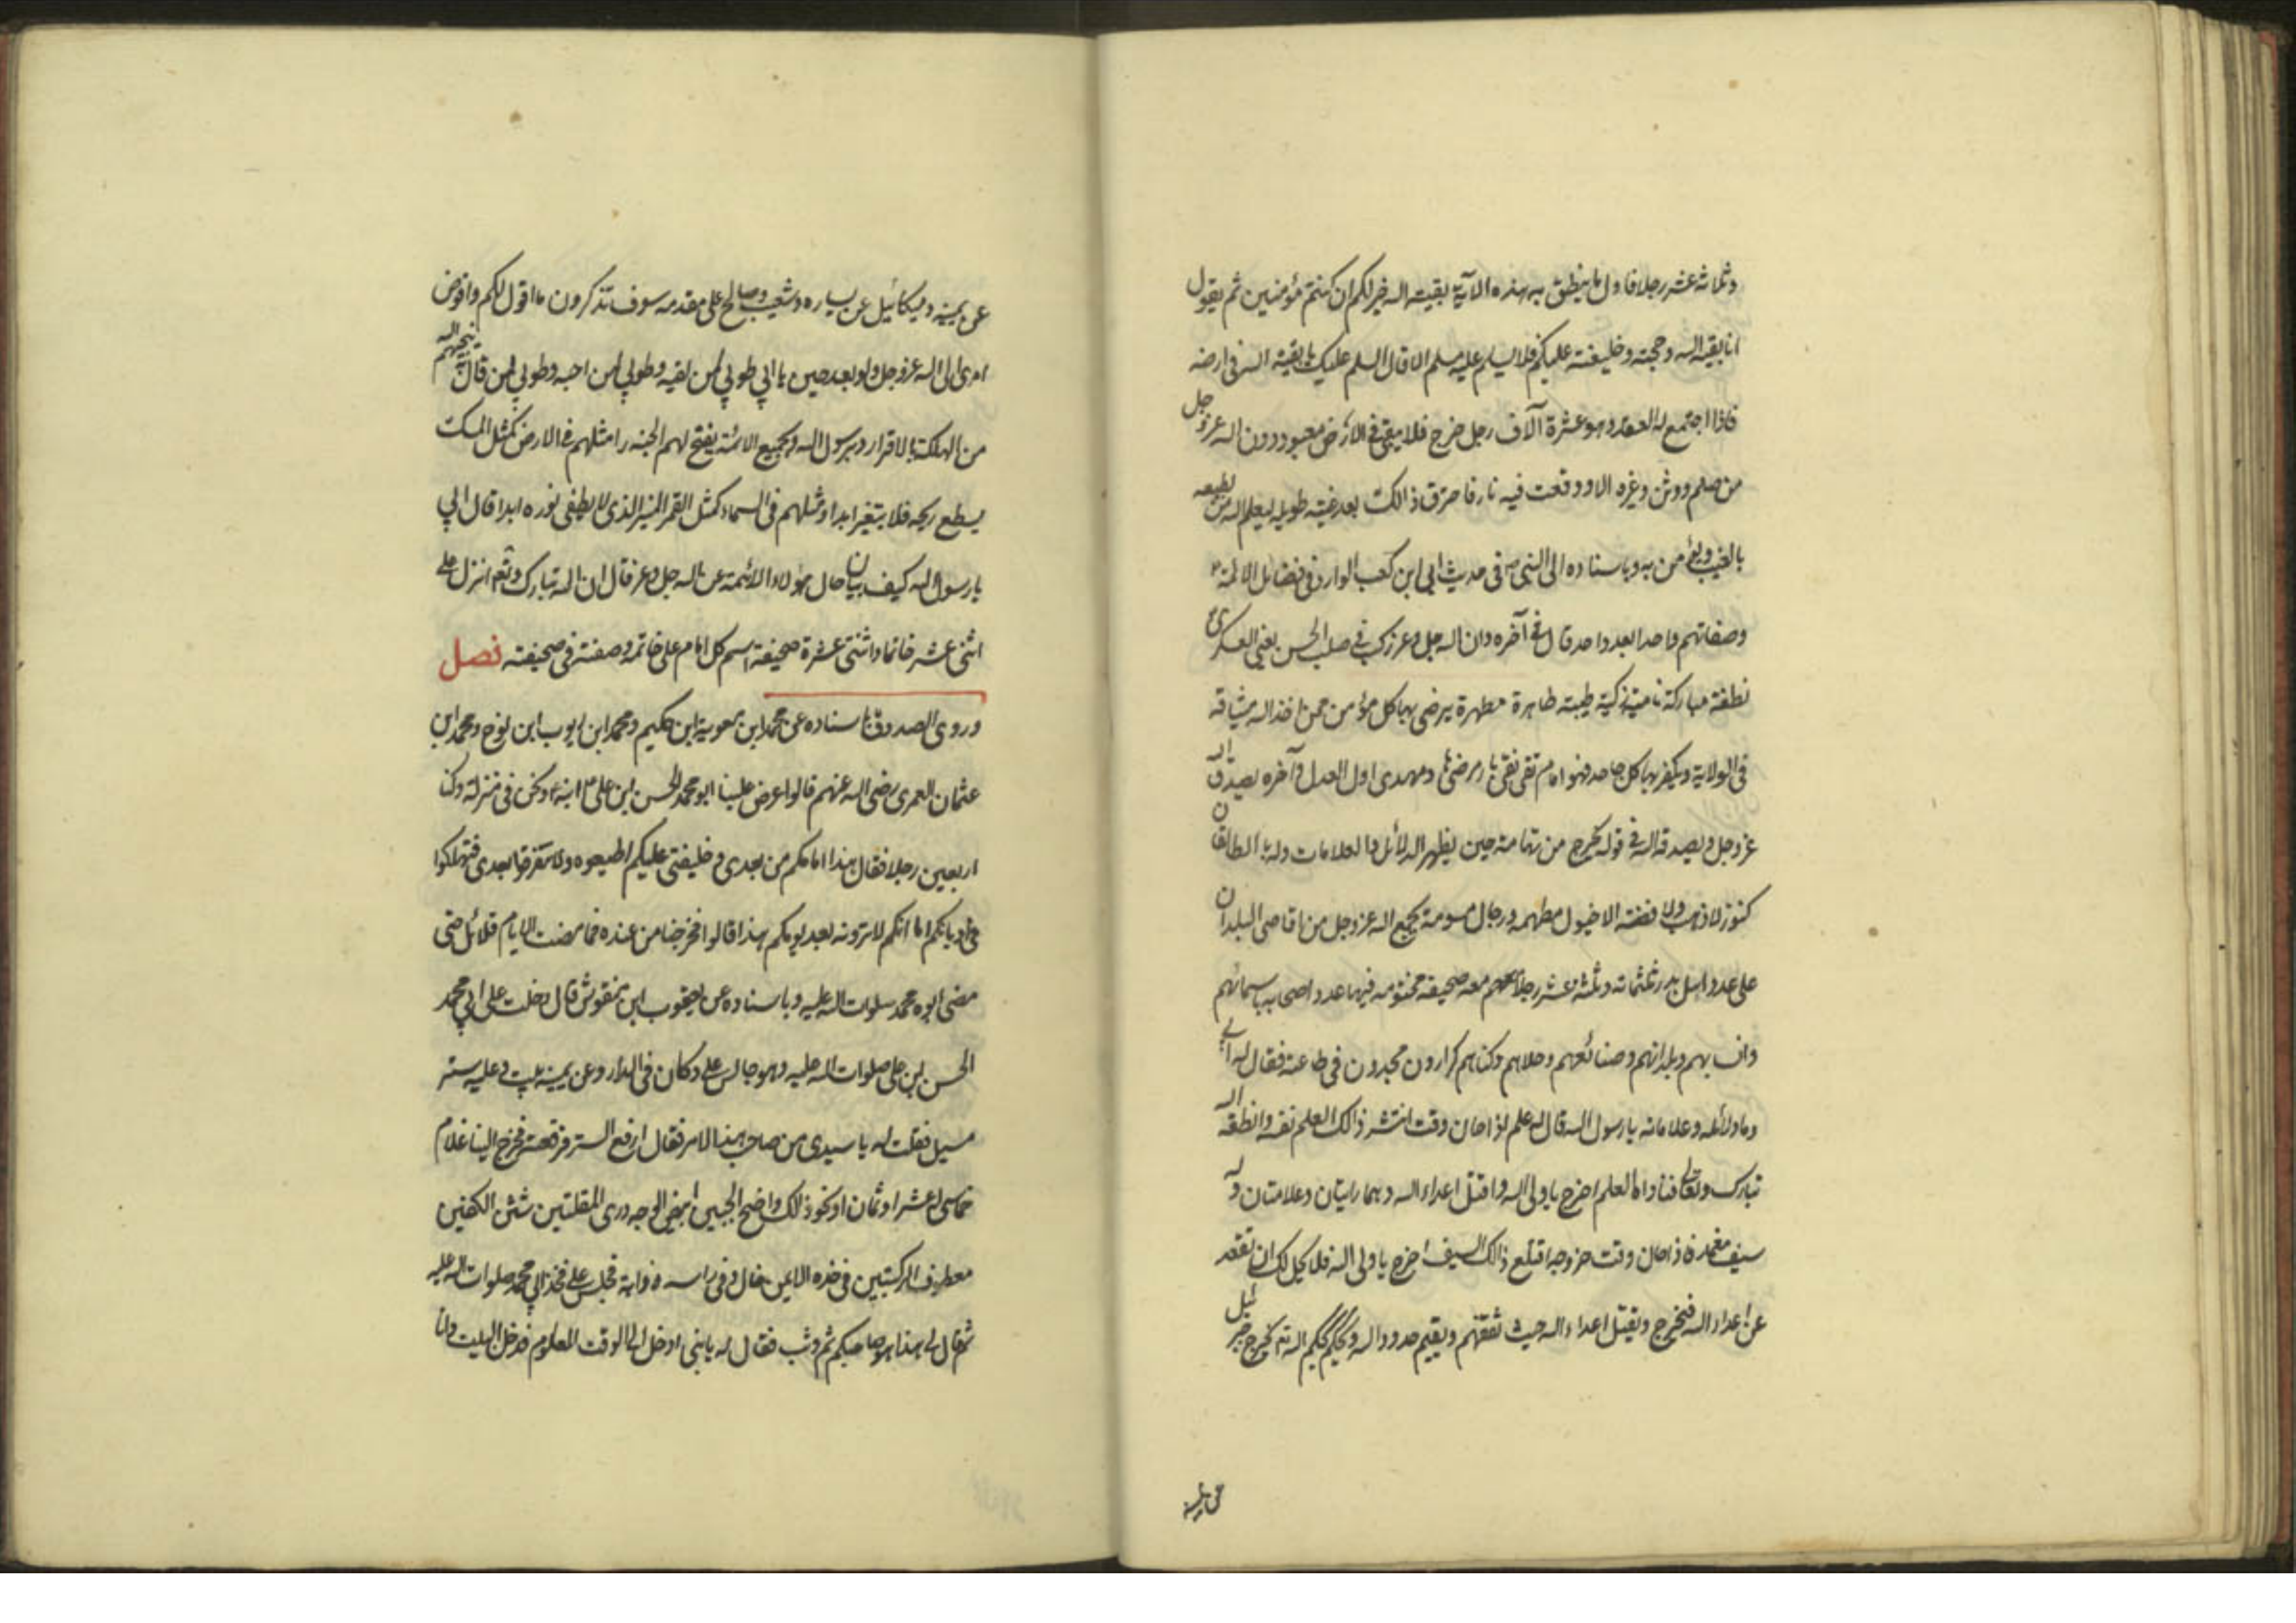 وثلثمائة عشر رجلا فاول ما ينطق به هذه الآية بقيت اله خير لكم ان كنتم مؤمنين ثم يقول
انا بقية اله وحجته وخليفته عليكم فلا يسلم عليه مسلم الا قال السلم عليك يا بقية اله فى ارضه
فاذا اجتمع له العقد وهو عشرة آلاف رجل خرج فلا يبقى فى الارض معبود دون اله عز وجل
من صنم ووثن وغيره الا ووقعت فيه نار فاحترق ذالك بعد غيبة طويله ليعلم اله من يطيعه
بالغيب ويؤمن به وباسناده الى النبى ص فى حديث ابي ابن كعب الوارد فى فضائل الائمة ع
وصفاتهم واحدا بعد واحد قال فى آخره وان اله جل وعز ركب فى صلب الحسن يعنى العسكرى ع
نطفة مباركة نامية زكية طيبة طاهرة مطهرة يرضى بها كل مؤمن ممن اخذ اله ميثاقه
فى الولاية ويكفر بها كل جاحد فهو امام تقى نقى بار مرضى هاد ومهدى اول العدل وآخره يصدق اله
عز وجل ويصدقه اله فى قوله يخرج من تهامة حين يظهر الدلائل والعلامات وله بالطالقان
كنوز لا ذهب ولا فضة الا خيول مطهمه ورجال مسومة يجمع اله عز وجل من اقاصى البلدان
على عدد اهل بدر ثلثمائه وثلثه عشر رجلا معه صحيفة مختومه فيها عدد اصحابه باسمائهم
وانسابهم وبلدانهم وصنائعهم وحلاهم وكناهم كرارون مجدون فى طاعته فقال له ابي
وما دلائله وعلاماته يا رسول اله قال له علم اذا حان وقت انتشر ذالك العلم نفسه وانطقه اله
تبارك وتعالى فناداه العلم اخرج يا ولى اله واقتل اعداء اله وهما رايتان وعلامتان وله
سيف مغمد فاذا حان وقت خروجه اقتلع ذالك السيف اخرج يا ولى اله فلا يحل لك ان تقعد
عن اعداء اله فيخرج ويقتل اعداء اله حيث ثقفهم ويقيم حدود اله ويحكم بحكم اله ته يخرج جبرئيل
عن يمينه
عن يمينه وميكائيل عن يساره وشعيب وصالح على مقدمه سوف تذكرون ما اقول لكم وافوض
امرى الى اله عز وجل ولو بعد حين يا ابي طوبى لمن لقيه وطوبى لمن احبه وطوبى لمن قال به ينجيهم اله
من الهلكة بالاقرار وبرسول اله وبجميع الائمة يفتح لهم الجنه را مثلهم فى الارض كمثل المسك
يسطع ريحه فلا يتغير ابدا ومثلهم فى السماء كمثل القمر المنير الذى لا يطفى نوره ابدا قال ابي
يا رسول اله كيف بيان حال هؤلاء الائمة عن اله جل وعز قال ان اله تبارك وتعم انزل على
اثنى عشر خاتما واثنتى عشرة صحيفة اسم كل امام على خاتمه وصفته فى صحيفته فصل
وروى الصدوق باسناده عن محمد ابن معويه ابن حكيم ومحمد ابن ايوب ابن نوح ومحمد ابن
عثمان العمرى رضى اله عنهم قالوا عرض علينا ابو محمد الحسن ابن على ع ابنه ونحن فى منزله وكنا
اربعين رجلا فقال هذا امامكم من بعدى وخليفتى عليكم اطيعوه ولا تتفرقوا بعدى فتهلكوا
فى اديانكم اما انكم لا ترونه بعد يومكم هذا قالوا فخرجنا من عنده فما مضت الا ايام قلائل حتى
مضى ابوه محمد سلوات اله عليه وباسناده عن يعقوب ابن منقوش قال دخلت على ابي محمد
الحسن ابن على صلوات اله عليه وهو جالس على دكان فى الدار وعن يمينه بيت وعليه ستر
مسبل فقلت له يا سيدى من صاحب هذا الامر فقال ارفع الستر فرفعته فخرج الينا غلام
خماسى له عشر او ثمان او نحو ذلك واضح الجبين ابيض الوجه درى المقلتين شثن الكفين
معطوف الركبتين فى خده الايمن خال وفى راسه ذوابة فجلس على فخذ ابي محمد صلوات اله عليه
ثم قال لى هذا هو صاحبكم ثم وثب فقال له يا بنى ادخل الى الوقت المعلوم فدخل البيت وانا